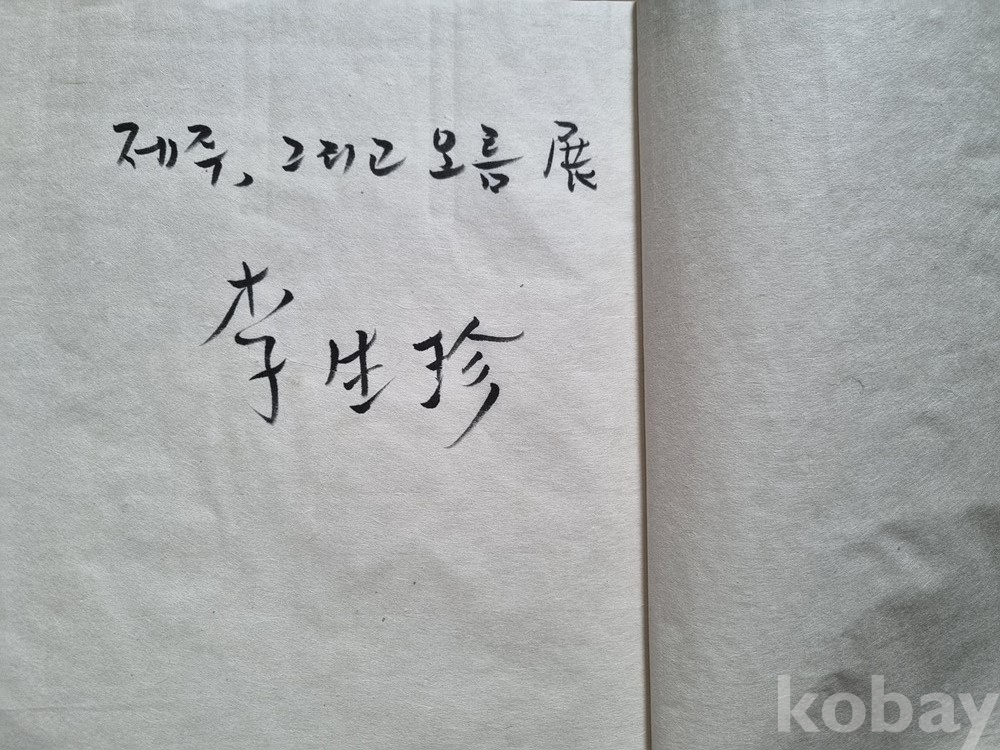 제주, 그리고 오름 展
李生珍
kobay